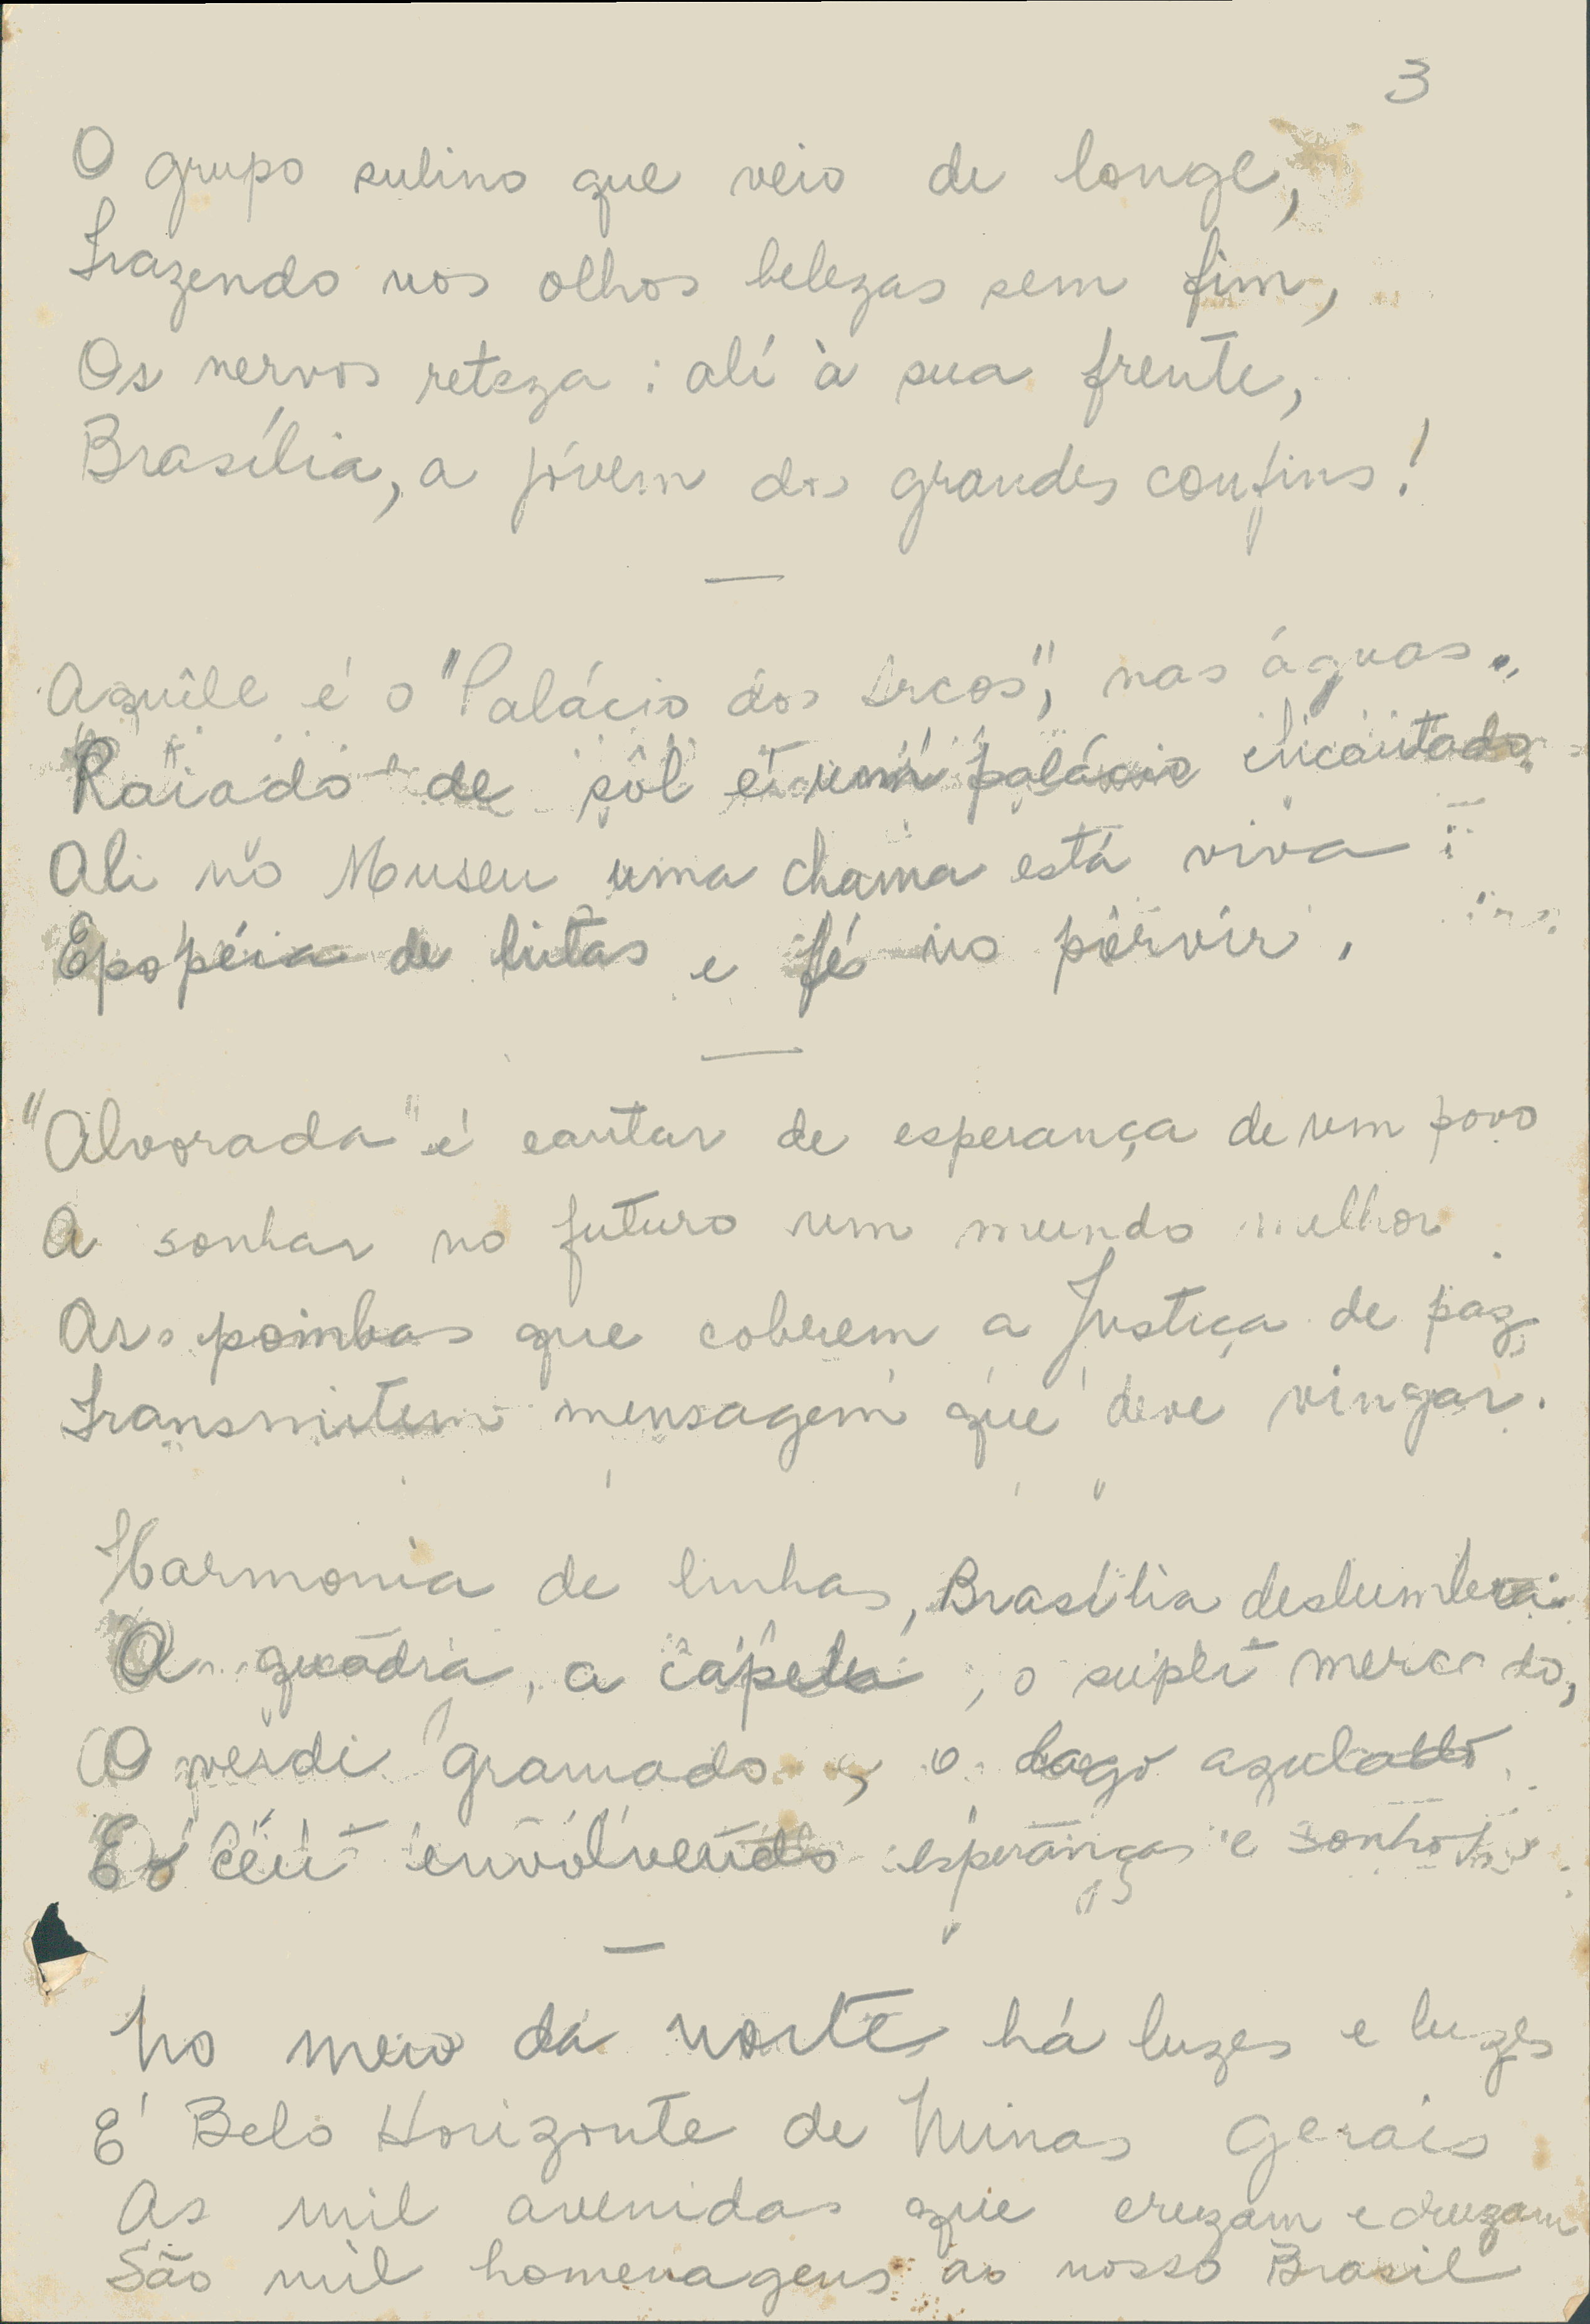 3
O grupo sulino que veio de longe,
Trazendo nos olhos belezas sem fim,
Os nervos reteza : alí à sua frente,
Brasília, a jóvem dos grandes confins!
—
Aquîle é o "Palácio dos Arcos", nas águas
Raiado de sôl é um palácio encantado.
Ali no Museu uma chama está viva :
Epopéia de lutas e fé no porvir.
—
"Alvorada" é cantar de esperança de um povo
A sonhar no futuro um mundo melhor.
As pombas que cobrem a Justiça de paz,
Transmitem mensagem que deve vingar.
Harmonia de linhas, Brasília deslumbra:
A quadra, a capela, o super mercado,
O verde gramado e o lago azulado
E o céu envolvendo esperanças e sonhos
—
No meio da noite há luzes e luzes
É Belo Horizonte de Minas Gerais
As mil avenidas que cruzam e cruzam
São mil homenagens ao nosso Brasil